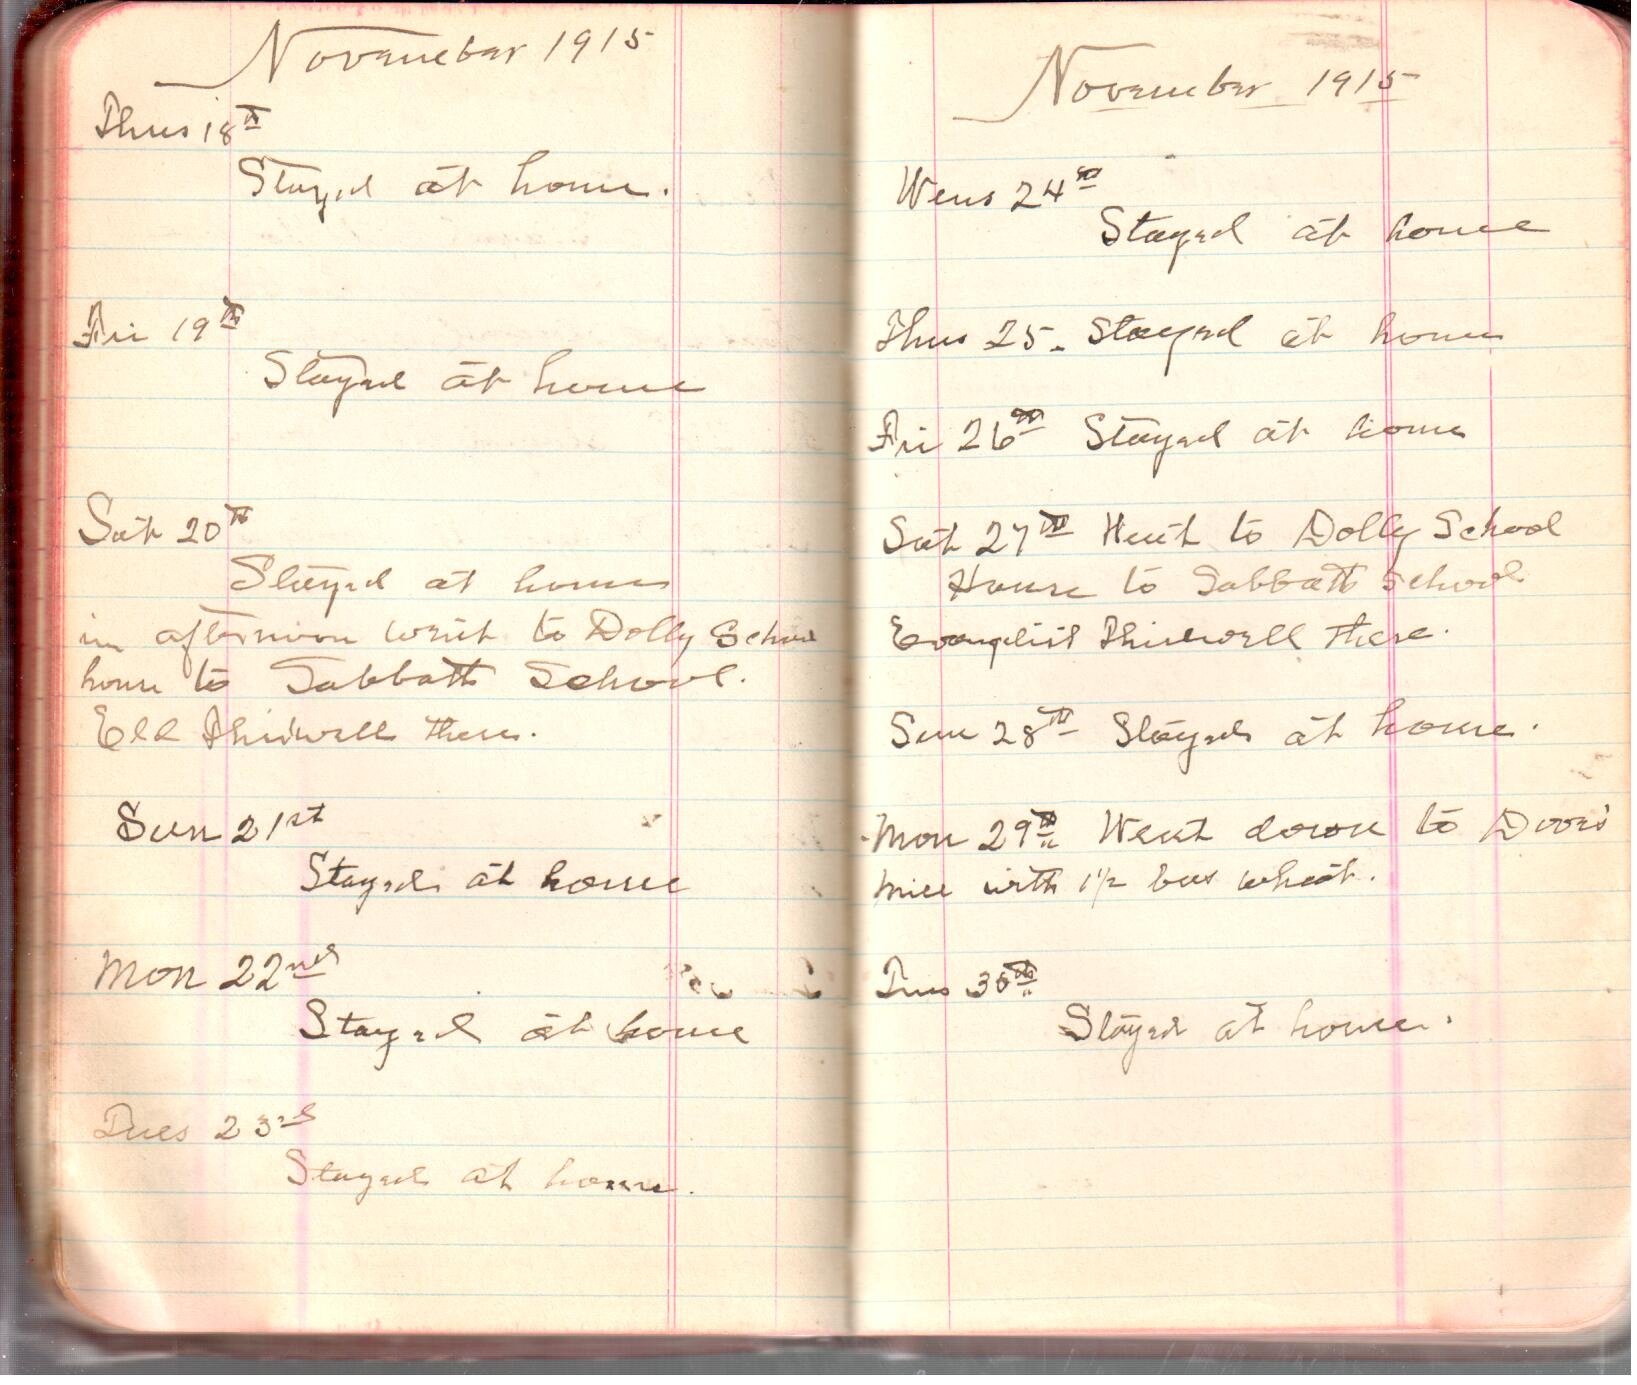 November 1915
Thus 18th
Stayed at home.
Fri 19th
Stayed at home
Sat 20th
Stayed at home
in afternoon went to Dolly School
house to Sabbath School.
Eld Thirwell there.
Sun 21st
Stayed at home
Mon 22nd
Stayed at home
Tues 23rd
Stayed at home.
November 1915
Wens 24th
Stayed at home
Thus 25. Stayed at home
Fri 26th Stayed at home
Sat 27th Went to Dolly School
House to Sabbath School
Evanglist Thirwell there.
Sun 28th Stayed at home.
Mon 29th Went down to
mill with 1 1/2 bus wheat.
Tues 30th
Stayed at home.